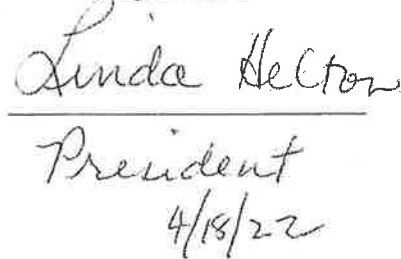 Linda Helton
President
4/18/22